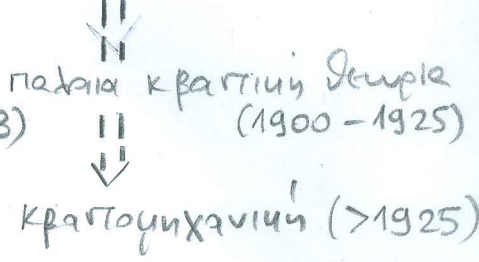 παλαια κβαντική θεωρία
3) (1900-1925)
κβαντομηχανική (>1925)